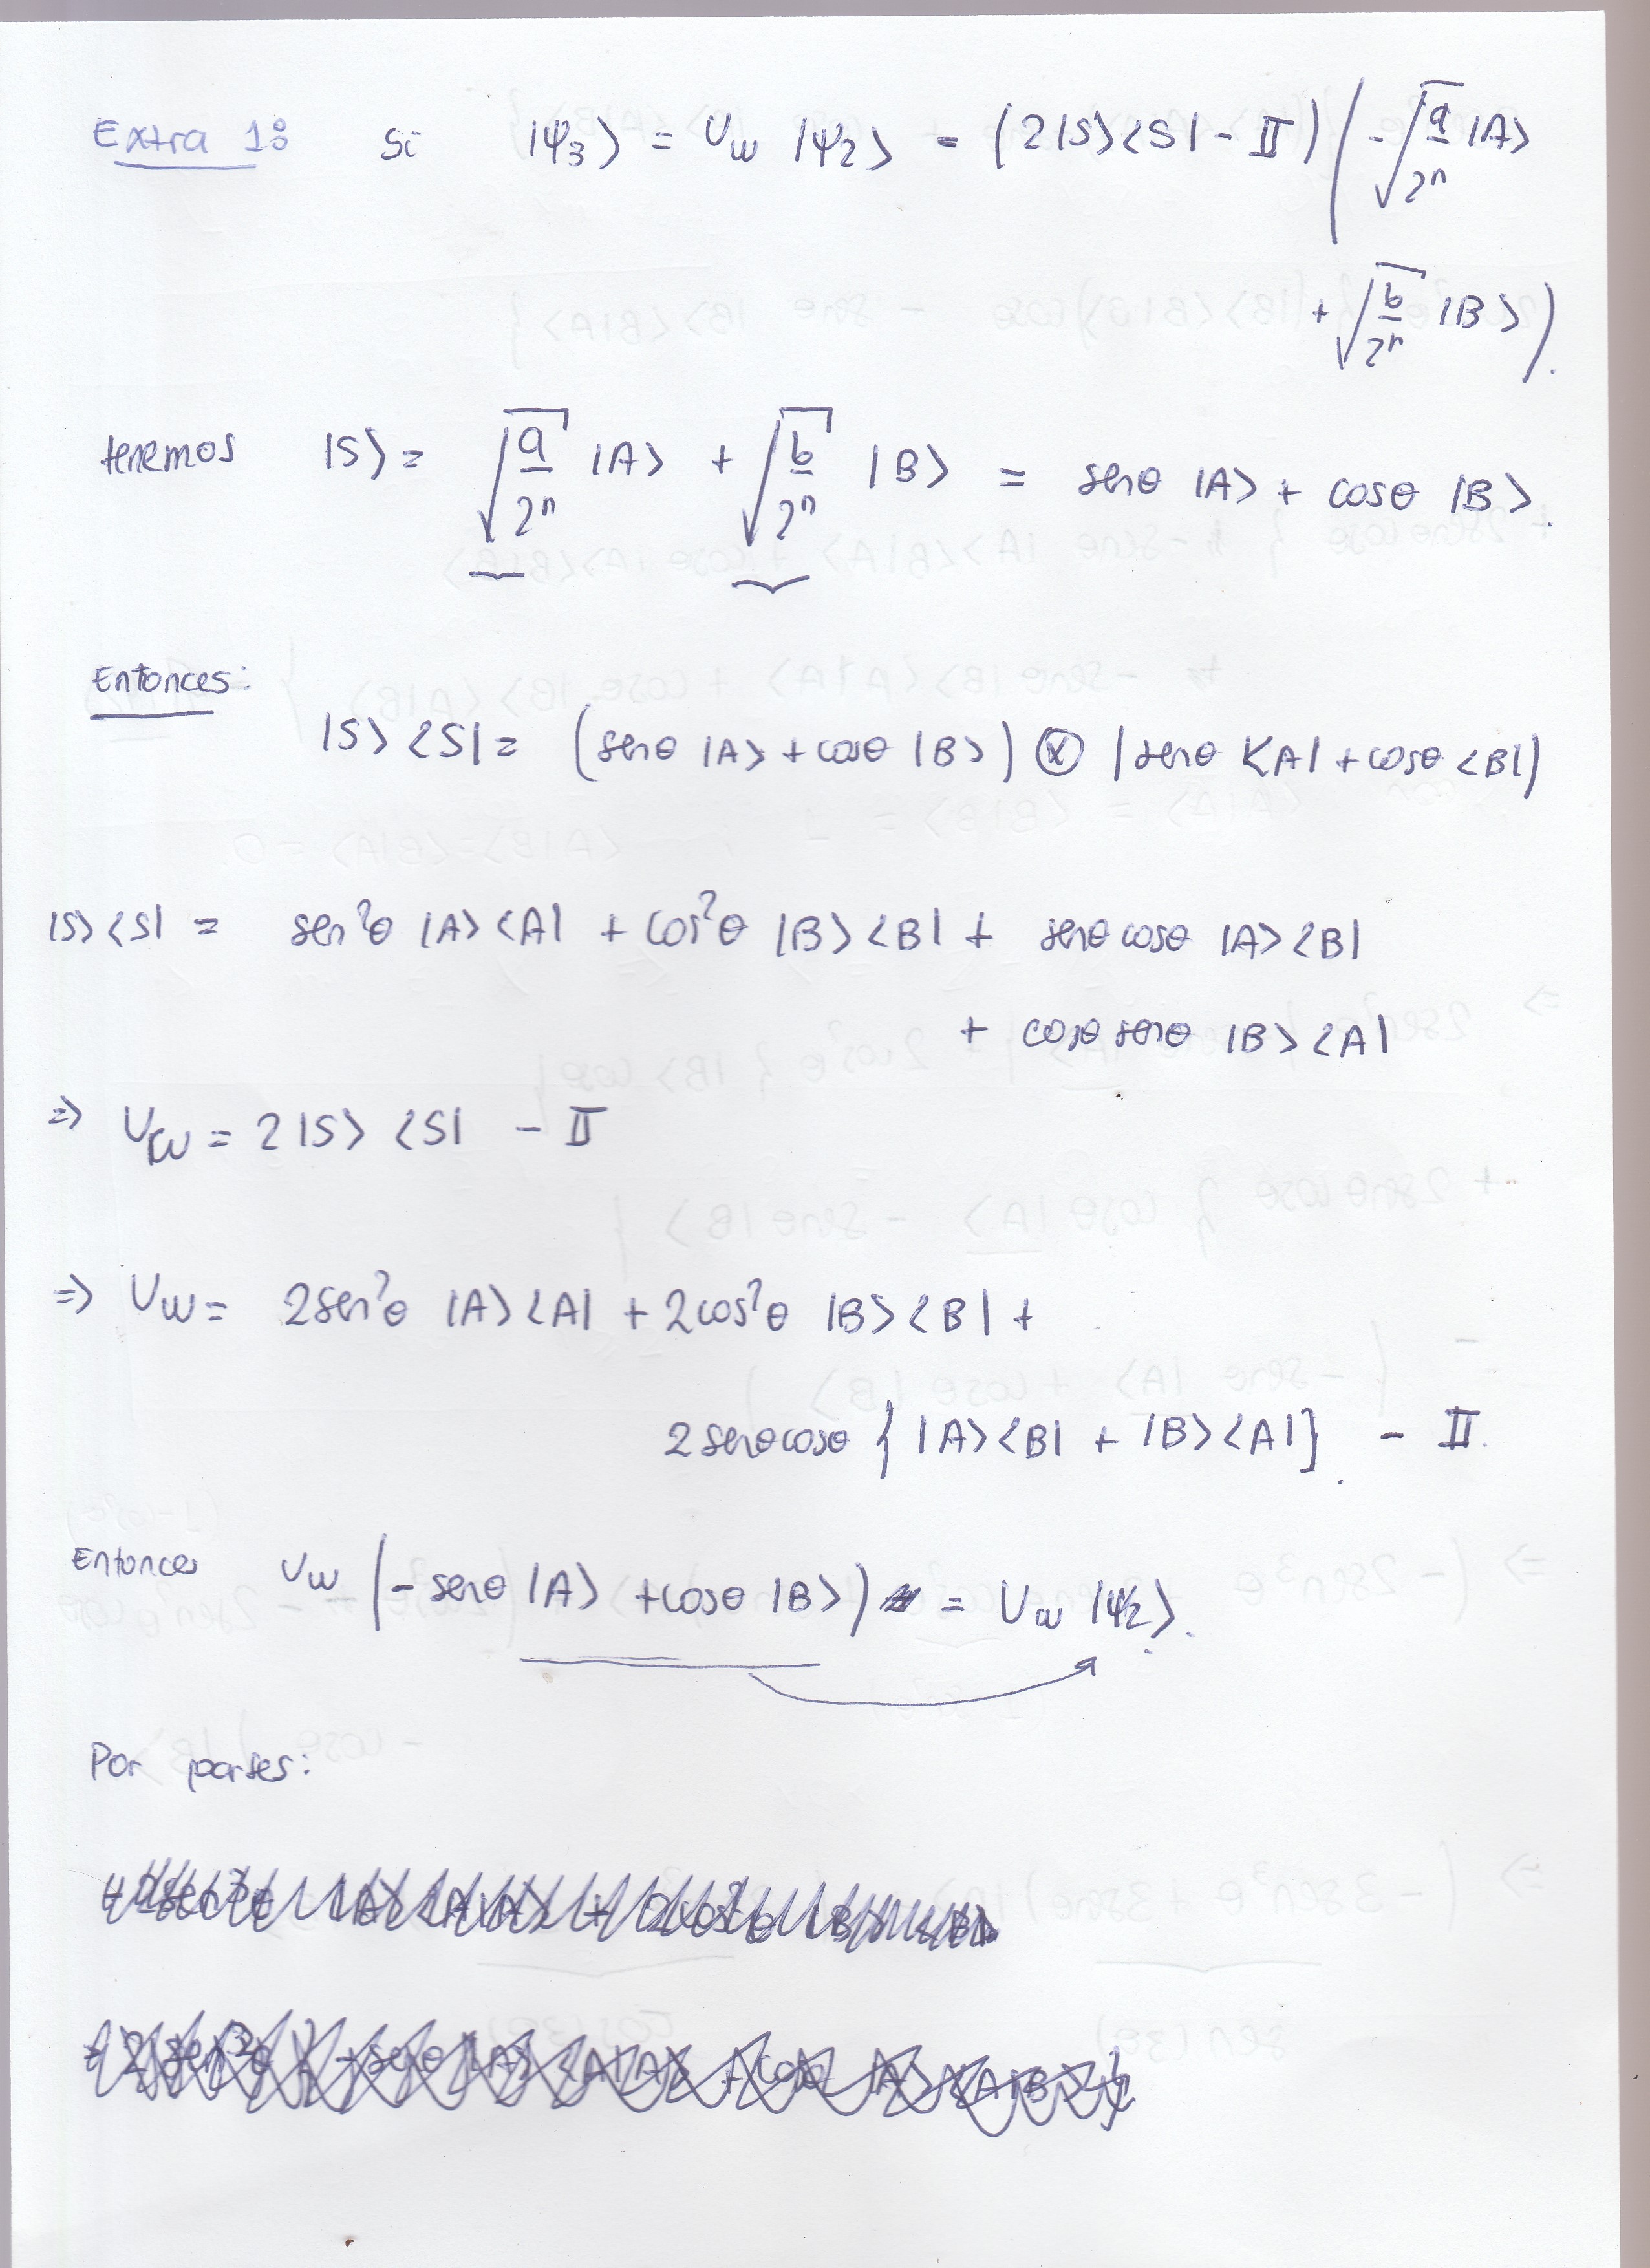 Extra 1: Si |ψ₃⟩ = U_w |ψ₂⟩ = (2|S⟩⟨S| - 𝕀) (-√(a/2ⁿ) |A⟩
+ √(b/2ⁿ) |B⟩).
tenemos |S⟩ = √(a/2ⁿ) |A⟩ + √(b/2ⁿ) |B⟩ = senθ |A⟩ + cosθ |B⟩.
Entonces:
|S⟩⟨S| = (senθ |A⟩ + cosθ |B⟩) ⊗ (senθ ⟨A| + cosθ ⟨B|)
|S⟩⟨S| = sen²θ |A⟩⟨A| + cos²θ |B⟩⟨B| + senθ cosθ |A⟩⟨B|
+ cosθ senθ |B⟩⟨A|
⇒ U_w = 2|S⟩⟨S| - 𝕀
⇒ U_w = 2sen²θ |A⟩⟨A| + 2cos²θ |B⟩⟨B| +
2senθcosθ {|A⟩⟨B| + |B⟩⟨A|}. - 𝕀.
Entonces U_w (-senθ |A⟩ + cosθ |B⟩) = U_w |ψ₂⟩.
Por partes: